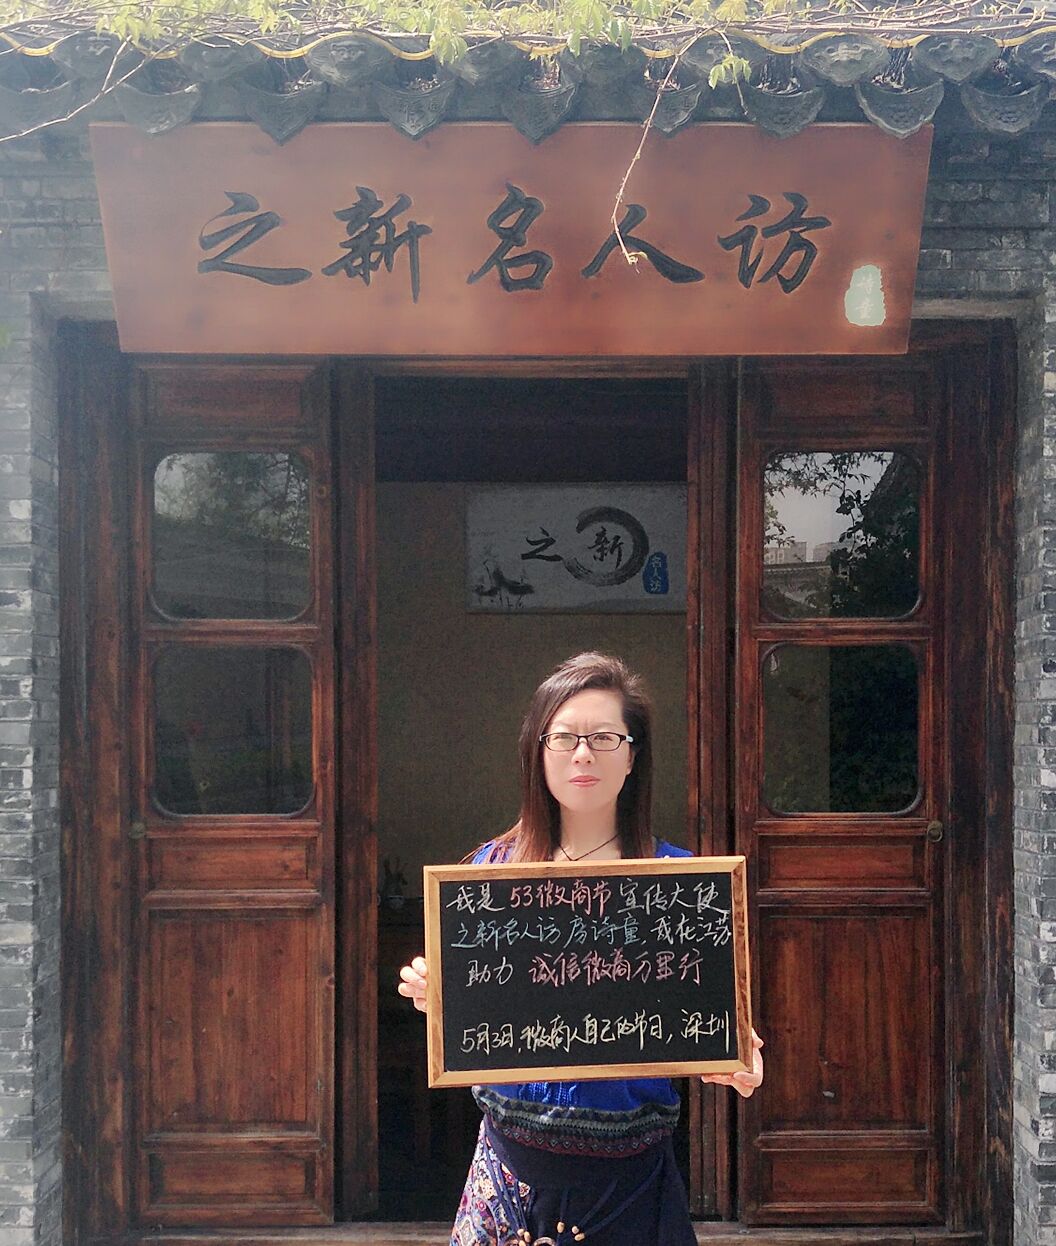 之新名人访
诗童
之新
名人访
我是 53微商节 宣传大使
之新名人访 房诗童，我在江苏
助力 诚信微商万里行
5月3日，微商人自己的节日，深圳